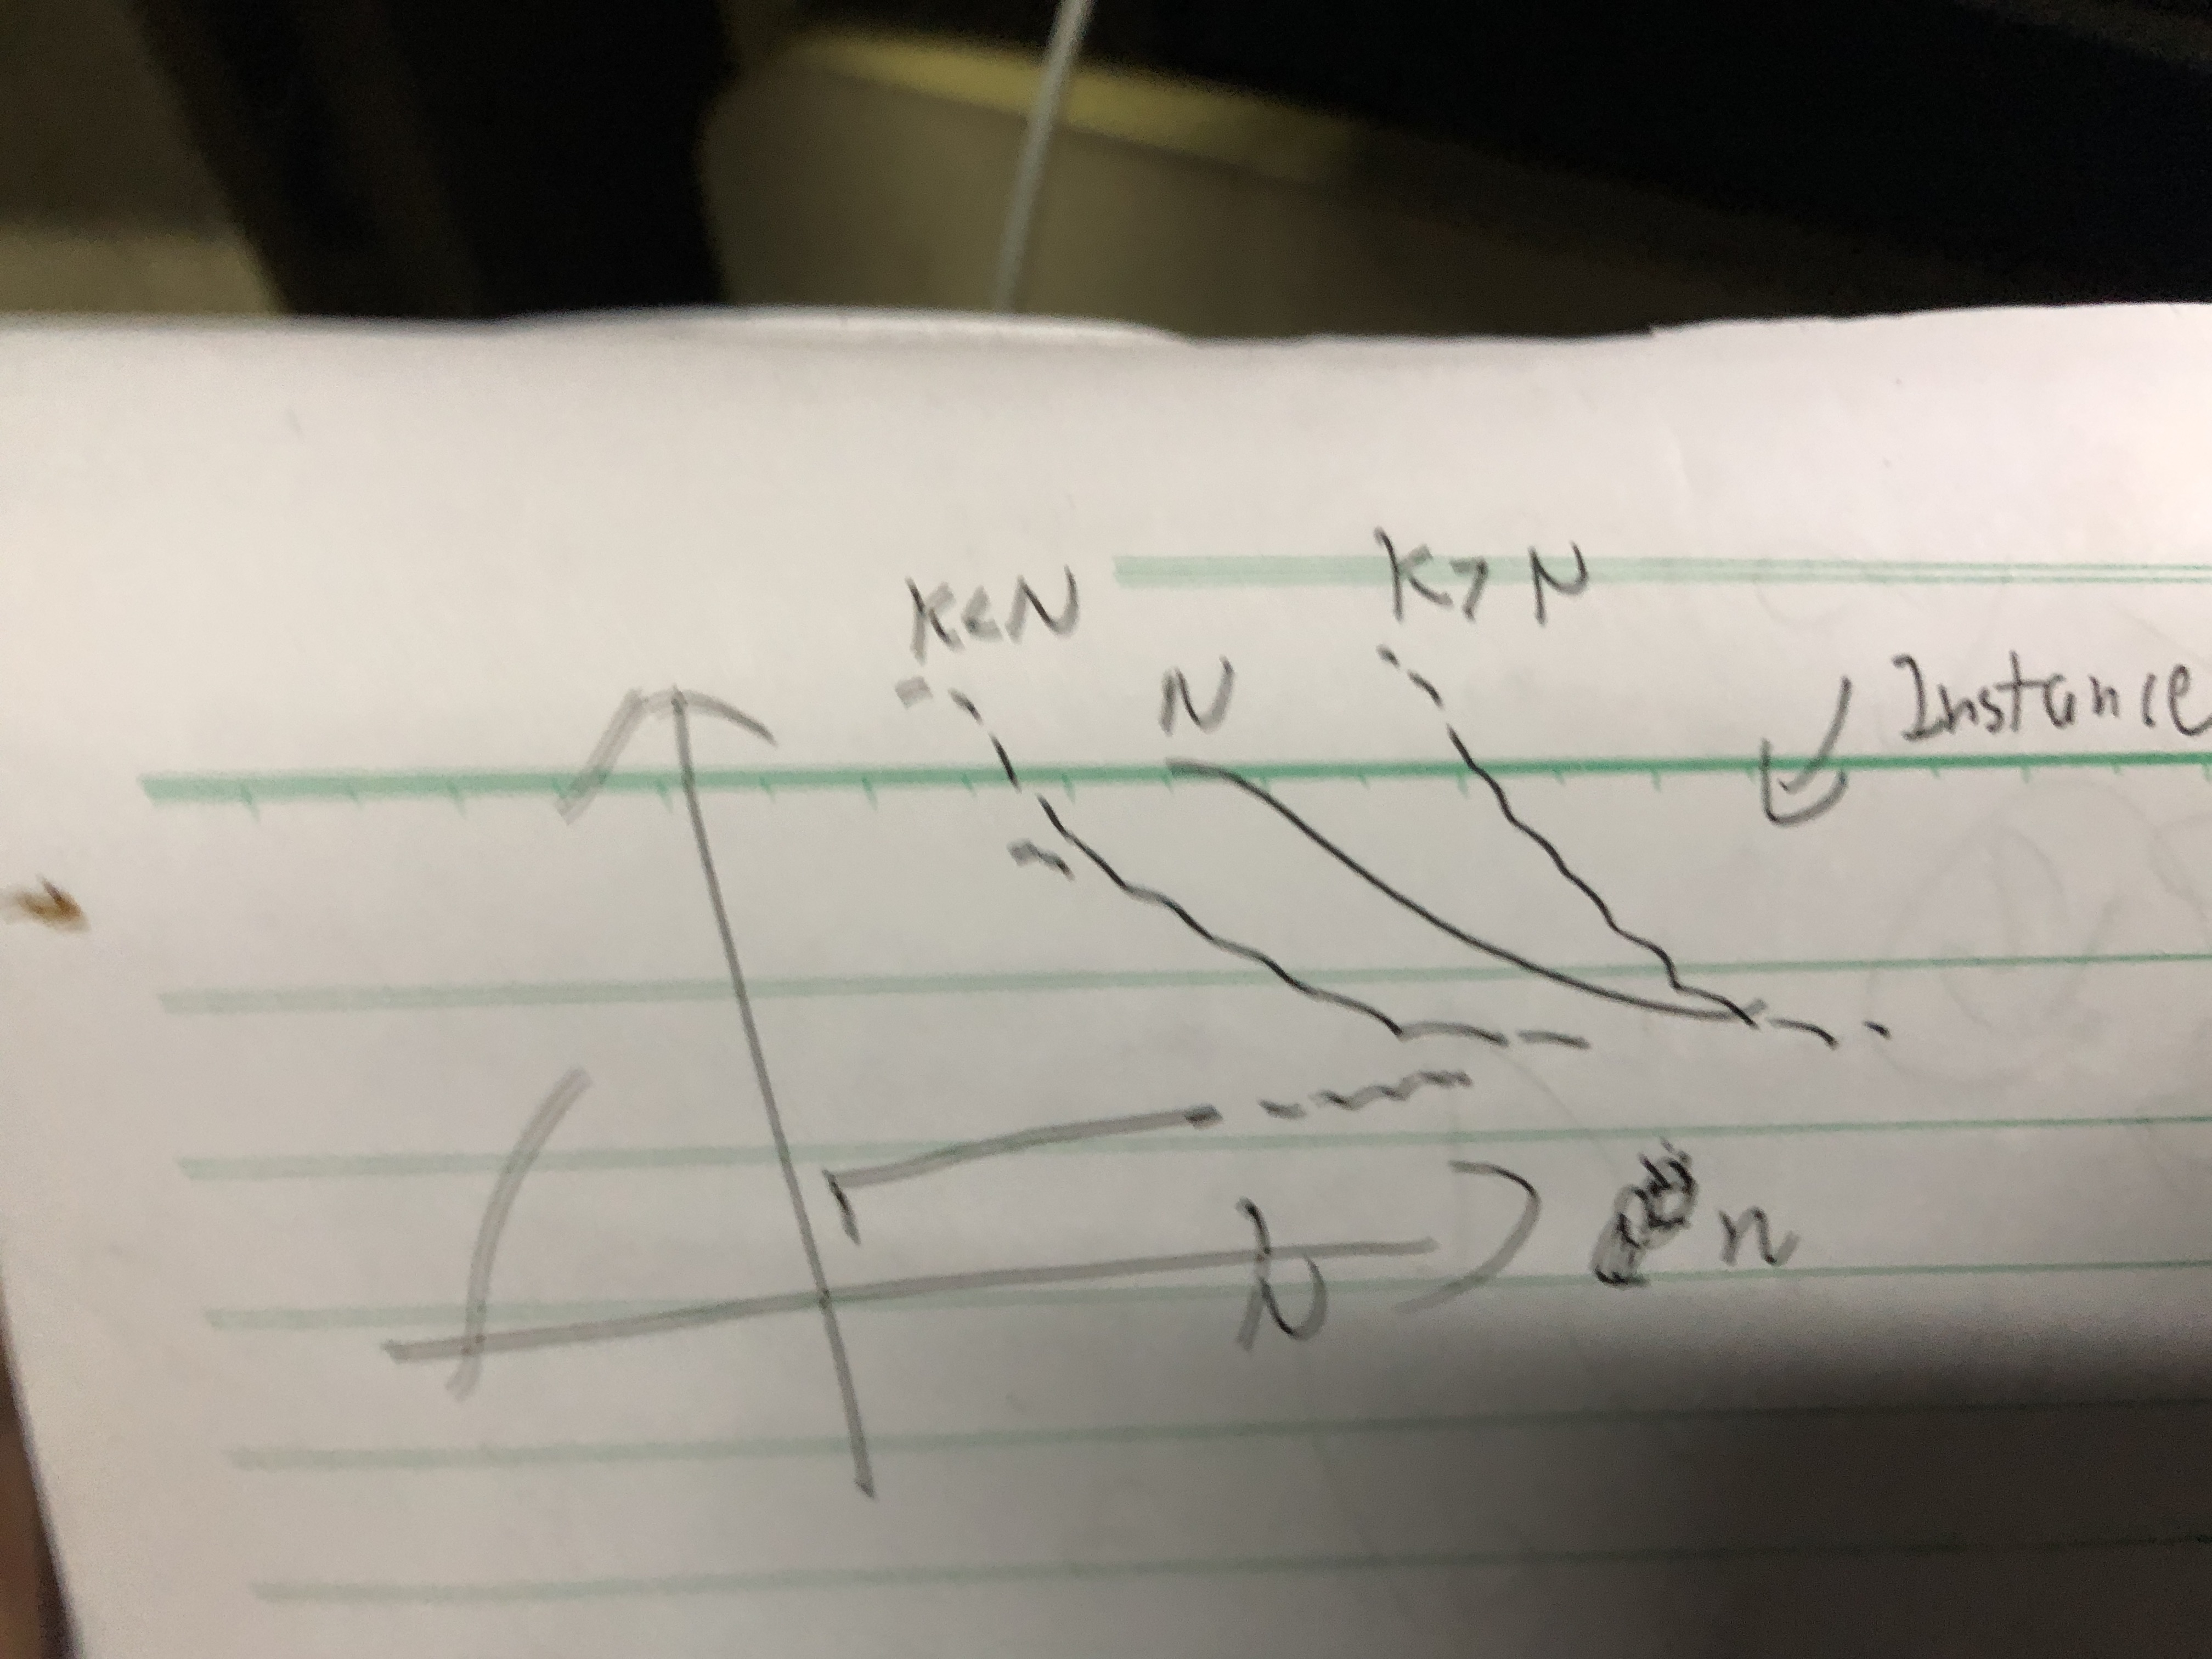 K<N
K>N
N
Instance
N
n